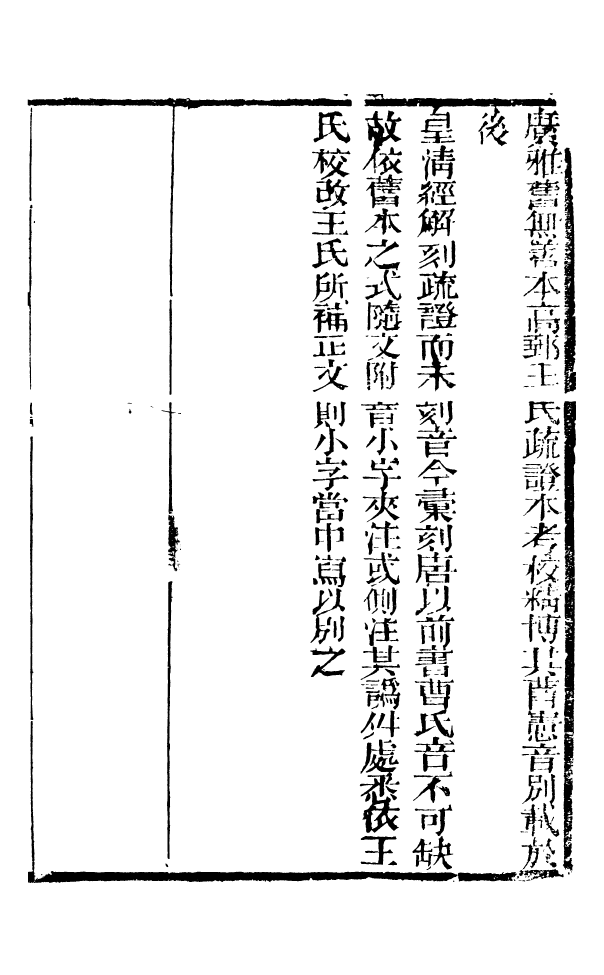 廣雅舊無善本高郵王氏疏證本考校精博其曹憲音別載於
後
皇清經解刻疏證而未刻音今彙刻唐以前書曹氏音不可缺
故依舊本之式隨文附音小字夾注或側注其譌舛處悉依王
氏校改王氏所補正文則小字當中寫以別之